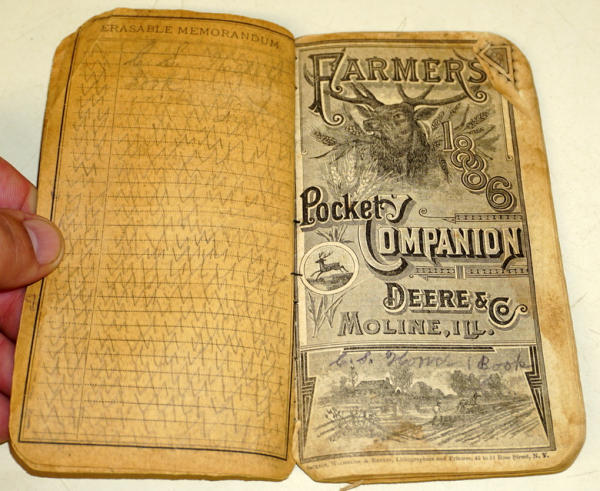 ERASABLE MEMORANDUM.
FARMERS
1886
Pocket
COMPANION
DEERE & Co
MOLINE, ILL.
C. S. Book
Lithographers and Printers, 45 to 51 Rose Street, N. Y.